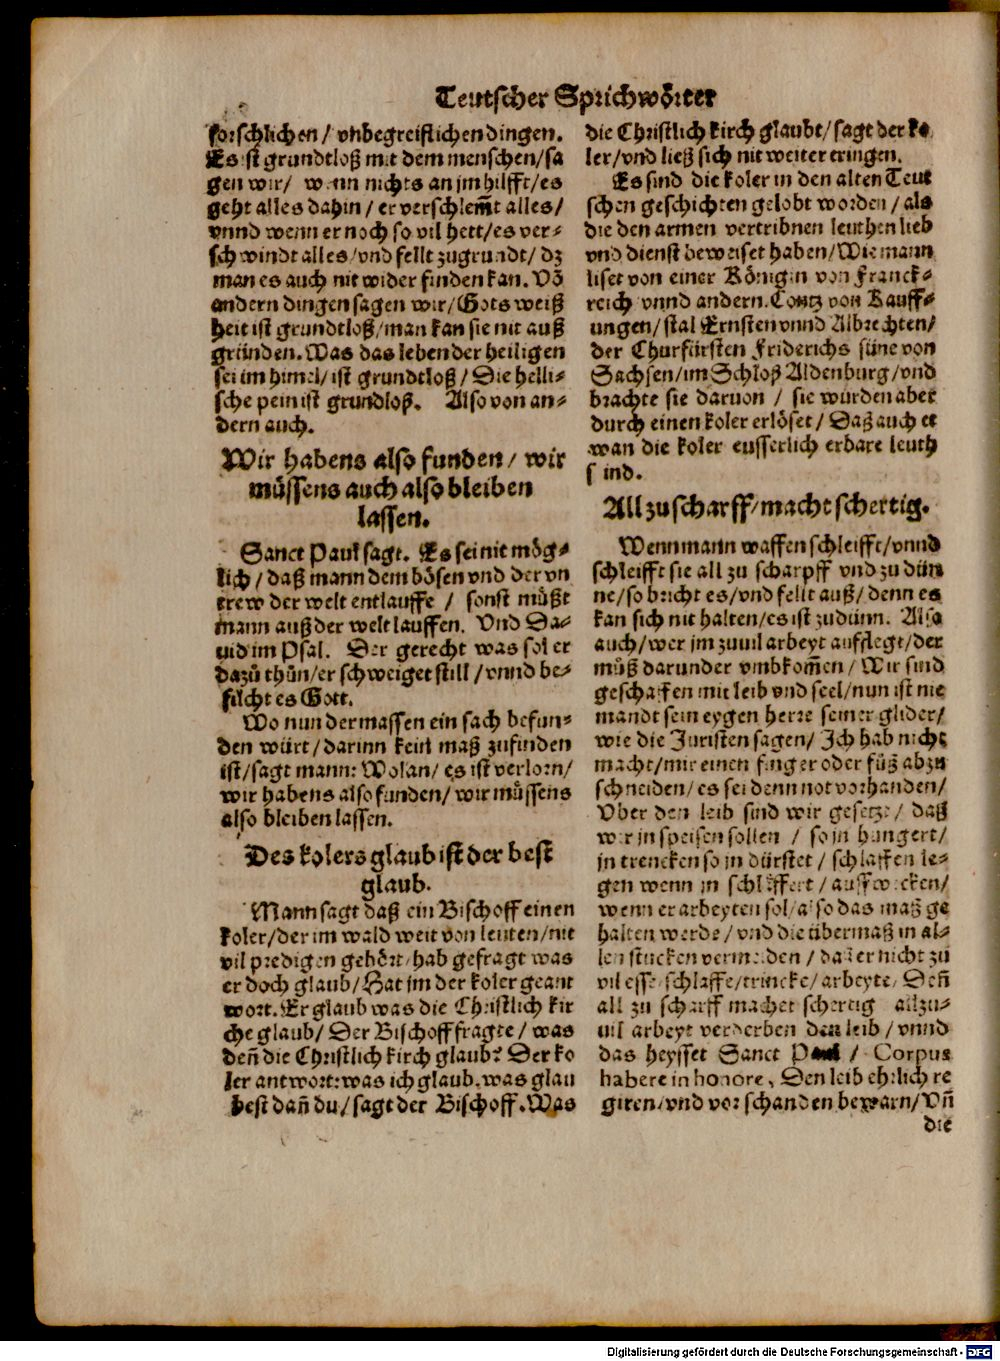 Teutscher Sprichwörter
forschlichen/ vnbegreiflichen dingen.
Es ist grundtloß mit dem menschen/sa
gen wir/ wenn nichts an jm hilfft/es
geht alles dahin/ er verschlem̃t alles/
vnnd wenn er noch so vil hett/es ver⸗
schwindt alles/vnd fellt zugrundt/ dz
man es auch nit wider finden kan. Võ
andern dingen sagen wir/Gots weiß
heit ist grundtloß/man kan sie nit auß
gründen. Was das leben der heiligen
sei im himel/ist grundtloß/ Die helli⸗
sche pein ist grundloß. Also von an⸗
dern auch.
Wir habens also funden/ wir
müssens auch also bleiben
lassen.
Sanct Paul sagt. Es sei nit mög⸗
lich/ daß mann dem bösen vnd der vn
trew der welt entlauffe / sonst müßt
mann auß der welt lauffen. Vnd Da⸗
uid im Psal. Der gerecht was sol er
dazů thůn/er schweiget still/vnnd be⸗
filcht es Gott.
Wo nun dermassen ein sach befun⸗
den würt/darinn kein maß zufinden
ist/sagt mann: Wolan/ es ist verlorn/
wir habens also funden/ wir müssens
also bleiben lassen.
Des kolers glaub ist der best
glaub.
Mann sagt daß ein Bischoff einen
koler/der im wald weit von leuten/nit
vil predigen gehört/hab gefragt was
er doch glaub/Hat jm der koler geant
wort. Er glaub was die Christlich kir
che glaub/ Der Bischoff fragte/ was
deñ die Christlich kirch glaub? Der ko
ler antwort: was ich glaub. was glau
best dañ du/sagt der Bischoff. Was
die Christlich kirch glaubt/sagt der ko
ler/vnd ließ sich nit weiter eringen.
Es sind die koler in den alten Teut
schen geschichten gelobt worden/als
die den armen vertribnen leuthen lieb
vnd dienst beweiset haben/Wie mann
liset von einer Königin von Franck⸗
reich vnnd andern. Contz von Kauff⸗
ungen/stal Ernsten vnnd Albrechten/
der Churfürsten Friderichs süne von
Sachsen/im Schloß Aldenburg/vnd
brachte sie daruon / sie wurden aber
durch einen koler erlöset/ Daß auch et
wan die koler eusserlich erbare leuth
sind.
All zu scharff/macht schertig.
Wenn mann waffen schleifft/vnnd
schleifft sie all zu scharpff vnd zu dün
ne/so bricht es/vnd fellt auß/denn es
kan sich nit halten/es ist zu dünn. Also
auch/wer jm zuuil arbeyt aufflegt/der
můß darunder vmbkom̃en/ Wir sind
geschaffen mit leib vnd seel/nun ist nie
mandt sein eygen herre seiner glider/
wie die Juristen sagen/ Ich hab nicht
macht/mir einen finger oder fůß abzu
schneiden/es sei denn not vorhanden/
Vber den leib sind wir gesetzt/ daß
wir jn speisen sollen / so jn hungert/
jn trencken so jn dürstet/ schlaffen le⸗
gen wenn jn schläffert/ auffwecken/
wenn er arbeyten sol/also das maß ge
halten werde/vnd die übermaß in al⸗
len stucken vermeiden/ daß er nicht zů
vil esse/schlaffe/trincke/arbeyte/ Deñ
all zu scharff machet schertig allzu⸗
uil arbeyt verderben den leib/vnnd
das heysset Sanct Paul / Corpus
habere in honore, Den leib ehrlich re
giren/vnd vor schanden bewarn/Vñ
die
Digitalisierung gefördert durch die Deutsche Forschungsgemeinschaft - DFG